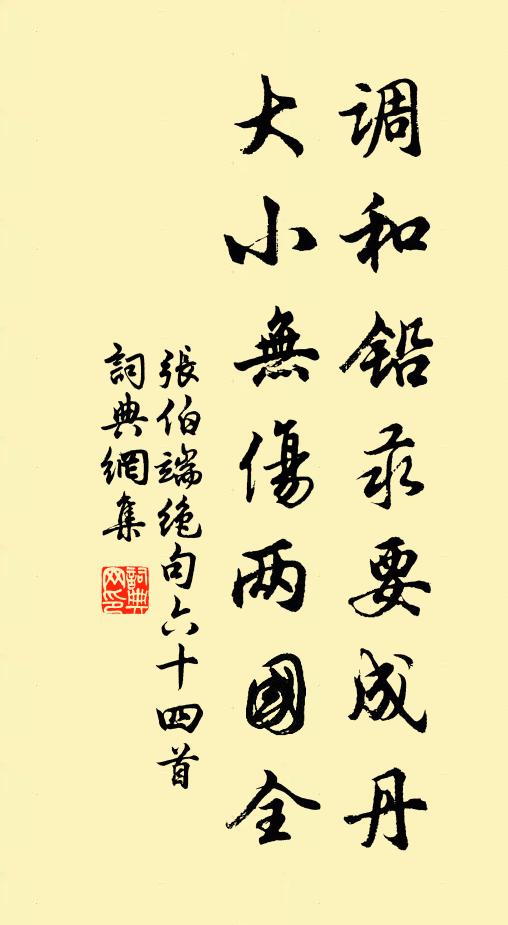 调和铅汞要成丹
大小無傷两國全
張伯端绝句六十四首
詞典網集
詞典网印